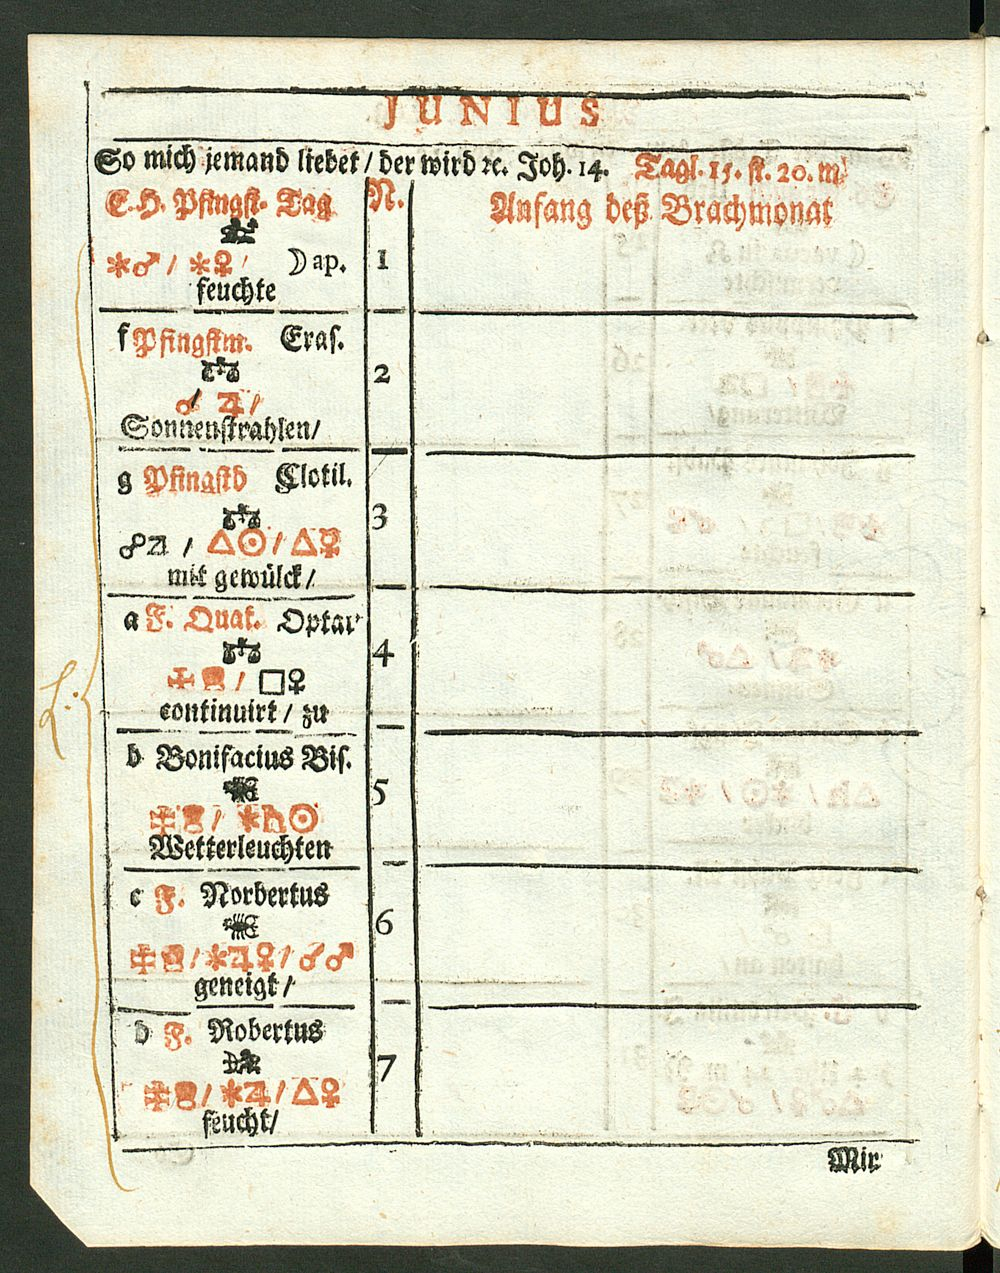 JUNIUS
So mich jemand liebet / der wird ꝛc. Joh. 14. Tagl. 15. st. 20. m
E. H. Pfingst- Tag N. Anfang deß Brachmonat
⚹♂ / ⚹♀ / ☽ ap. 1
feuchte
f Pfingstm. Eras.
2
☌ ♃ /
Sonnenstrahlen /
g Pfingstd Clotil.
3
☍♃ / △☉ / △☿
mit gewülck /
a F. Quat. Optat
4
□♀
continuirt / zu
b Bonifacius Bis.
5
⚹♄☉
Wetterleuchten
c F. Norbertus
6
⚹♃♀ / ☌♂
geneigt /
d F. Robertus
7
⚹♃ / △♀
feucht /
L.
Mir